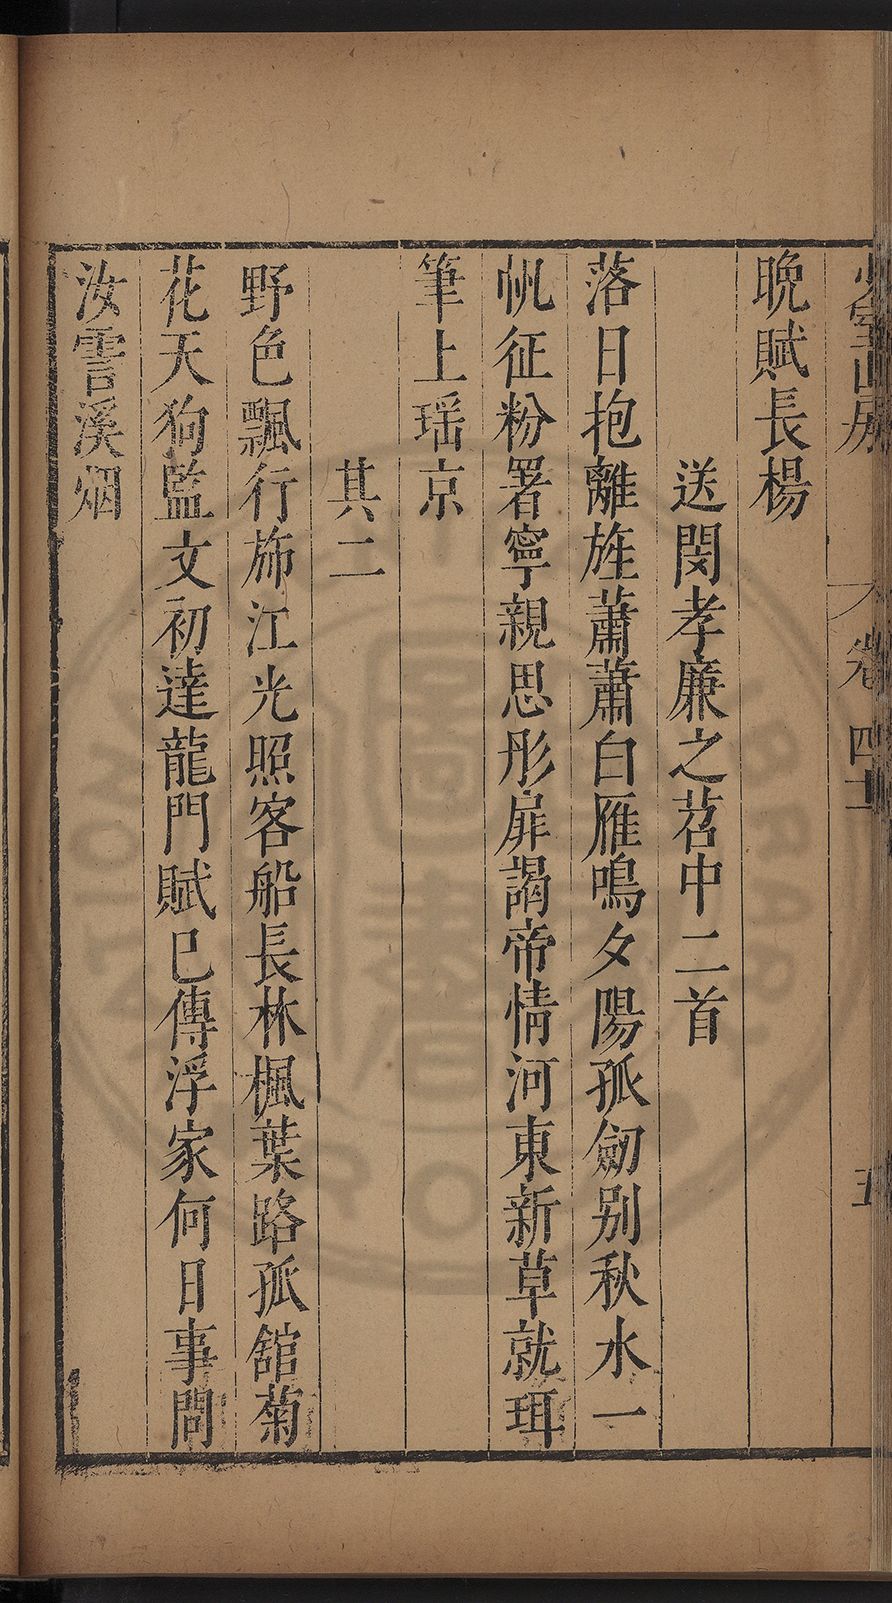 少室山房 卷四十 五
晩賦長楊
送閔孝廉之苕中二首
落日抱離旌蕭蕭白雁鳴夕陽孤劒别秋水一
帆征粉署寧親思彤扉謁帝情河東新草就珥
筆上瑶京
其二
野色飄行斾江光照客船長林楓葉路孤舘菊
花天狗監文初達龍門賦已傳浮家何日事問
汝霅溪烟